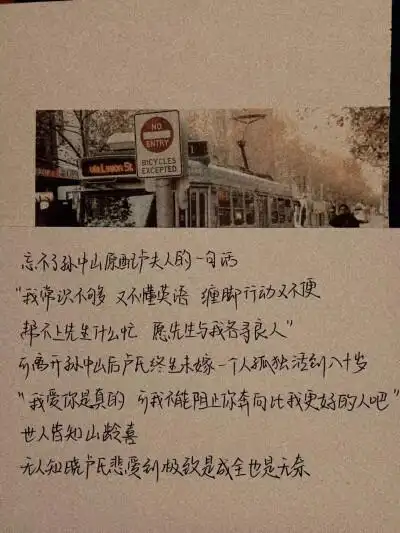 NO
ENTRY
BICYCLES
EXCEPTED
忘不了孙中山原配卢夫人的一句话
“我常识不够 又不懂英语 缠脚行动又不便
帮不上先生什么忙 愿先生与我各寻良人”
可离开孙中山后卢氏终生未嫁一个人孤独活到八十岁
“我爱你是真的 可我不能阻止你奔向比我更好的人吧”
世人皆知山龄喜
无人知晓卢氏悲爱到极致是成全也是无奈